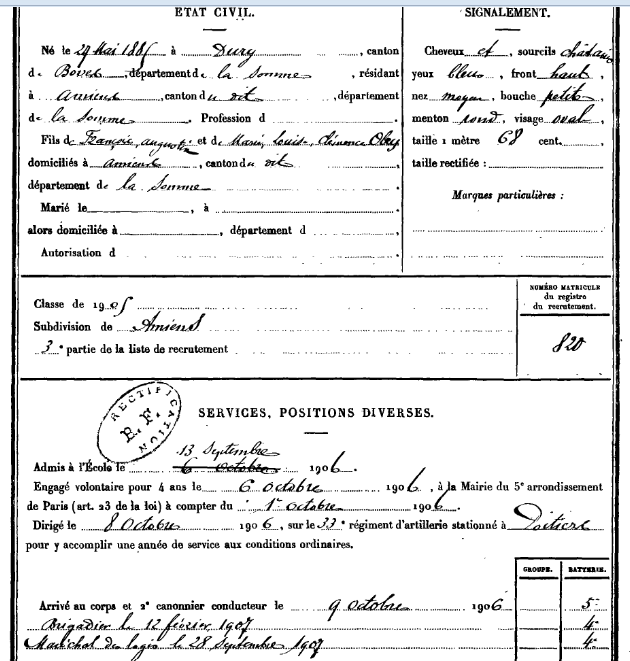 ETAT CIVIL.
Né le 29 Mai 1885 à Dury, canton
de Boves, département de la Somme, résidant
à Amiens, canton du dit, département
de la Somme Profession d
Fils de François, Augustin et de Marie, Louise, Clémence Obry
domiciliés à Amiens, canton du dit
département de la Somme
Marié le, à
alors domiciliée à, département d
Autorisation d
SIGNALEMENT.
Cheveux et, sourcils châtains
yeux bleus, front haut,
nez moyen, bouche petite
menton rond, visage oval,
taille 1 mètre 68 cent.
taille rectifiée :
Marques particulières :
Classe de 1905
Subdivision de Amiens
3e partie de la liste de recrutement
NUMÉRO MATRICULE
du registre
du recrutement.
820
RECTIFICATION
R.F.
SERVICES, POSITIONS DIVERSES.
13 Septembre
Admis à l'École le 6 octobre 1906.
Engagé volontaire pour 4 ans le 6 octobre 1906, à la Mairie du 5e arrondissement
de Paris (art. 23 de la loi) à compter du 1er octobre 1906.
Dirigé le 8 Octobre 1906, sur le 33e régiment d'artillerie stationné à Poitiers
pour y accomplir une année de service aux conditions ordinaires.
GROUPE. BATTERIE.
Arrivé au corps et 2e canonnier conducteur le 9 Octobre 1906 5
Brigadier le 12 février 1907 4
Maréchal des logis le 28 Septembre 1907 4